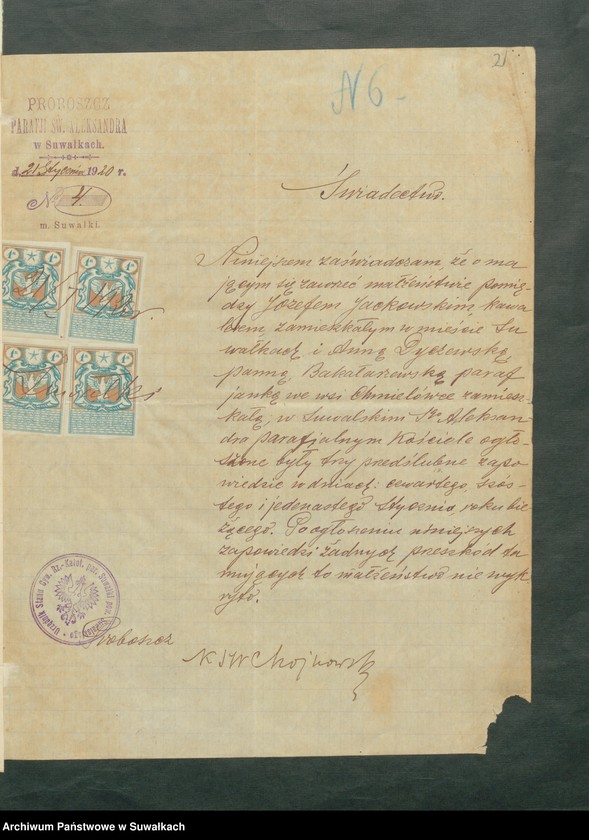 21
N 6 -
PROBOSZCZ
PARAFJI ŚW. ALEKSANDRA
w Suwałkach.
d. 21 Stycznia 1920 r.
№ 4.
m. Suwałki.
Świadectwo.
Niniejszem zaświadczam, że o ma
jącym się zawrzeć małżeństwie pomię
dzy Józefem Jackowskim, kawa
lerem, zamieszkałym w mieście Su
wałkach i Anną Dyczewską,
panną, Bakałarzewską paraf
janką we wsi Chmielówce zamiesz-
kałą, w Suwalskim Św. Aleksan
dra parafjalnym Kościele ogło-
szone były trzy przedślubne zapo
wiedzie w dniach: czwartego, szós-
tego i jedenastego Stycznia roku bie
żącego. Po ogłoszeniu niniejszych
zapowiedzi żadnych przeszkód ta
mujących to małżeństwo nie wyk
ryto.
Proboszcz
Archiwum Państwowe w Suwałkach